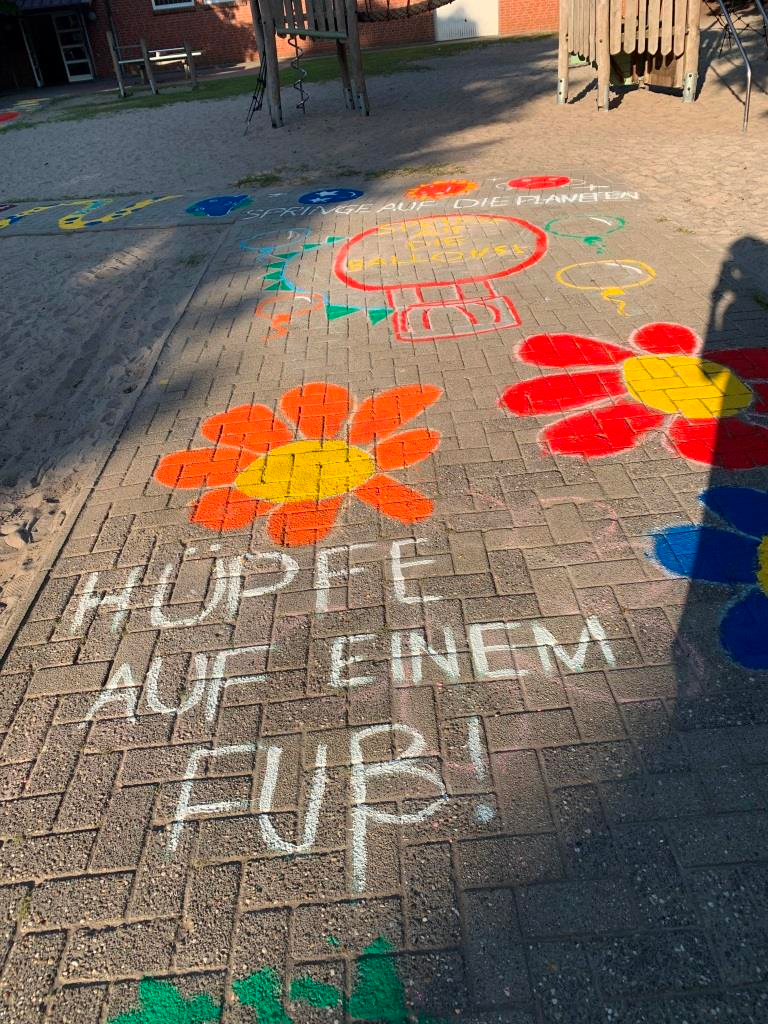 SPRINGE AUF DIE PLANETEN
DIE
HÜPFE
AUF EINEM
FUß!